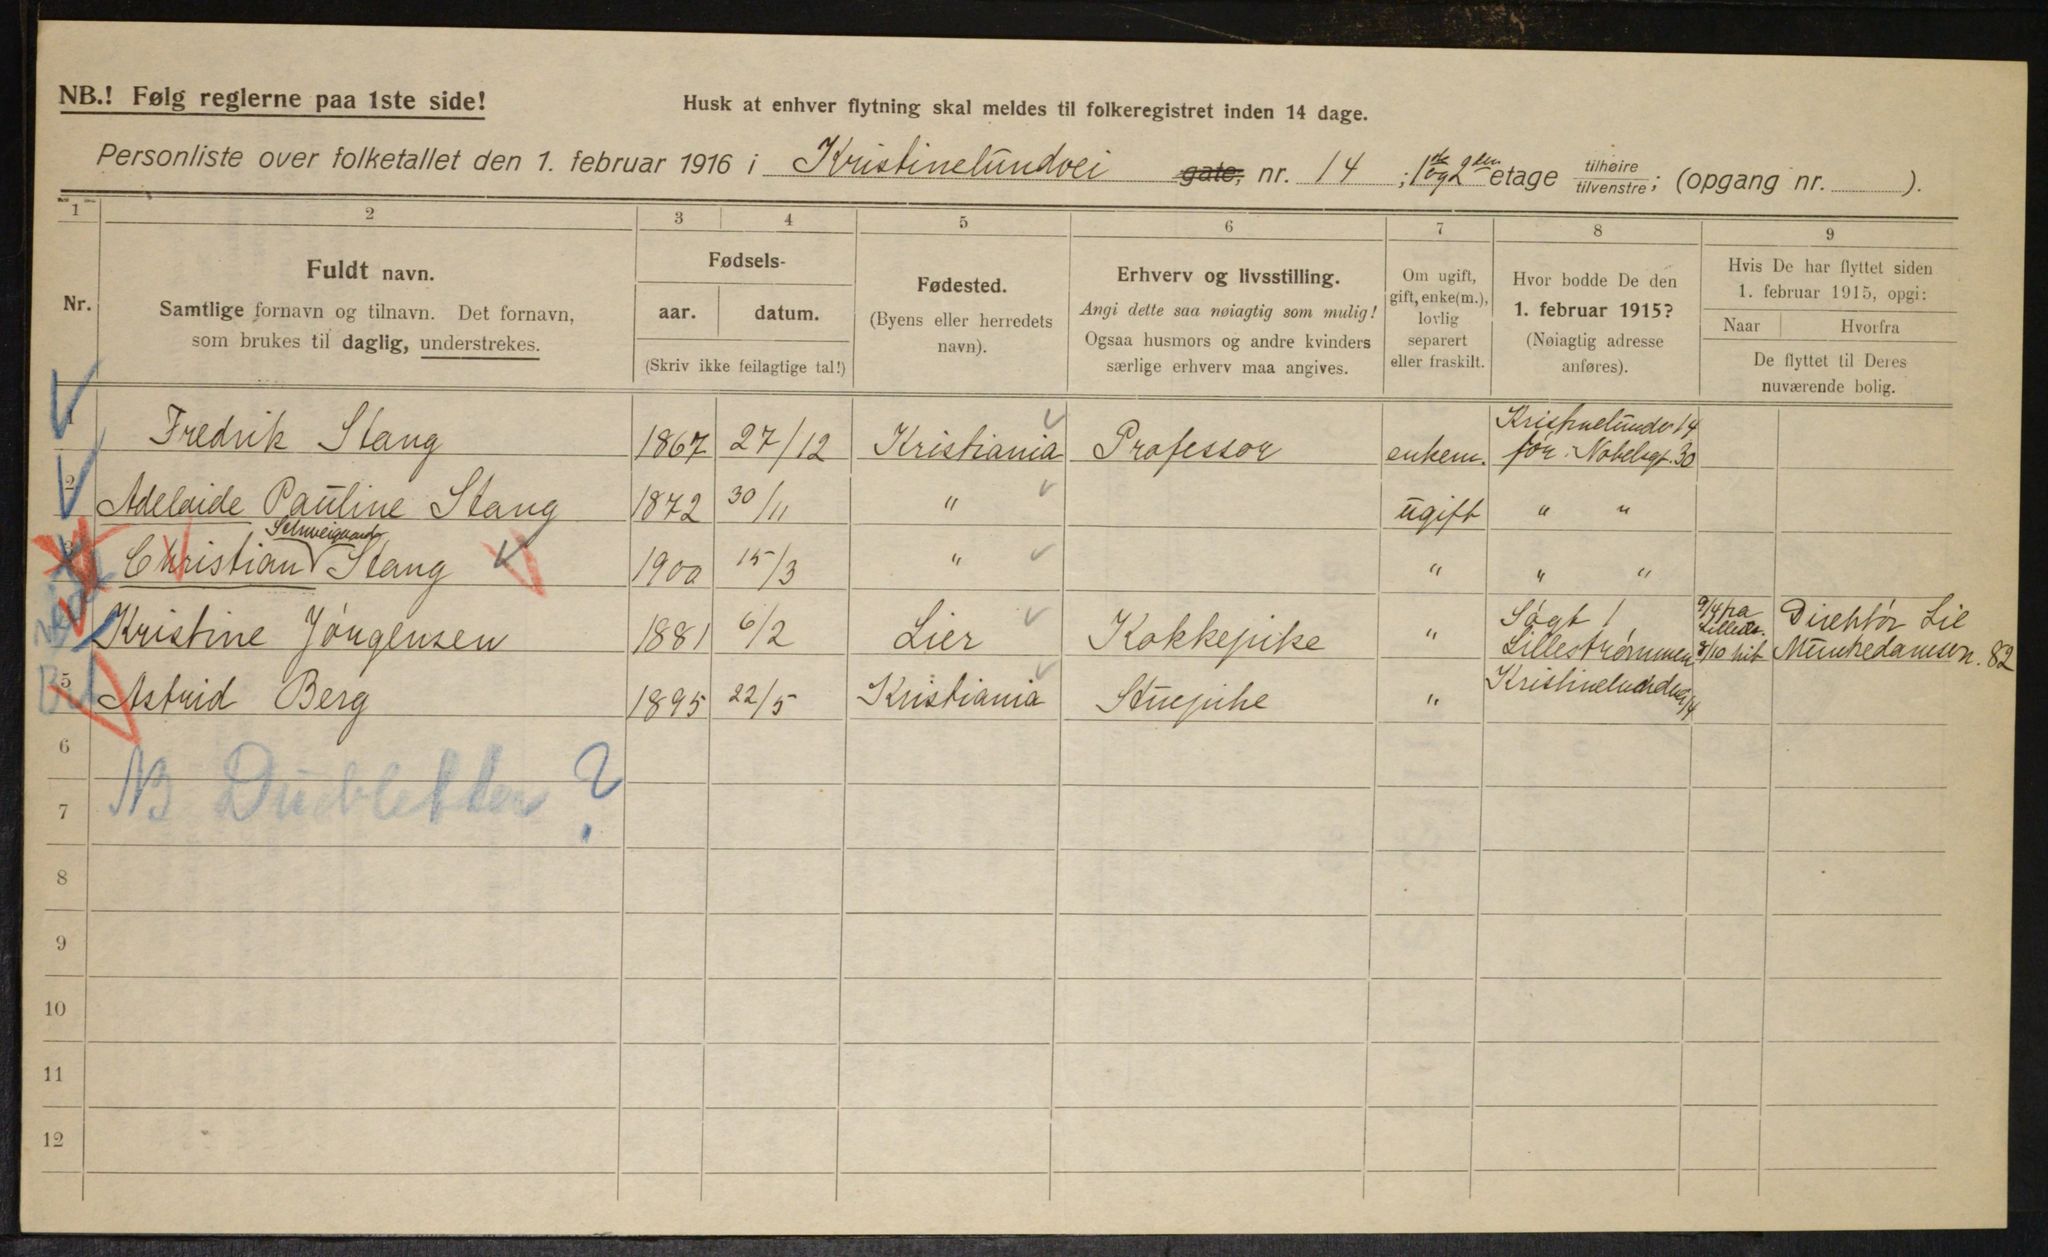 NB.! Følg reglerne paa 1ste side!
Husk at enhver flytning skal meldes til folkeregistret inden 14 dage.
Personliste over folketallet den 1. februar 1916 i Kristinelundvei gate, nr. 14 ; 1ste og 2den etage tilhøire/tilvenstre; (opgang nr. ).
1 2 3 4 5 6 7 8 9
Nr.
Fuldt navn.
Samtlige fornavn og tilnavn. Det fornavn,
som brukes til daglig, understrekes.
Fødsels-
aar. datum.
(Skriv ikke feilagtige tal!)
Fødested.
(Byens eller herredets
navn).
Erhverv og livsstilling.
Angi dette saa nøiagtig som mulig!
Ogsaa husmors og andre kvinders
særlige erhverv maa angives.
Om ugift,
gift, enke(m.),
lovlig
separert
eller fraskilt.
Hvor bodde De den
1. februar 1915?
(Nøiagtig adresse
anføres).
Hvis De har flyttet siden
1. februar 1915, opgi:
Naar Hvorfra
De flyttet til Deres
nuværende bolig.
1 Fredrik Stang 1867 27/12 Kristiania Professor enkem. Kristinelundv 14
før: Nobelsgt. 30
2 Adelaide Pauline Stang 1872 30/11 " ugift " "
3 Christian Schweigaard Stang 1900 15/3 " " " "
Kristine Jörgensen 1881 6/2 Lier Kokkepike " Sagt
Lillestrømmen 9/4 fra
Lillestr.
8/10 hit Direktör Lie
Munkedamsv. 82
5 Astrid Berg 1895 22/5 Kristiania Stuepike " Kristinelundvei 14
6
NB Dubletter?
7
8
9
10
11
12